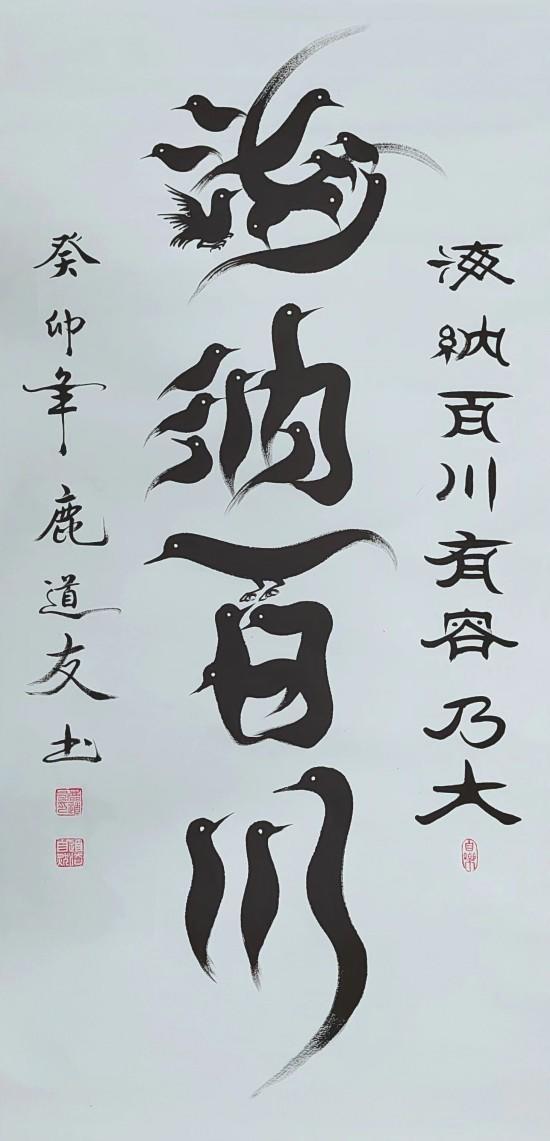 海納百川有容乃大
海納百川
癸卯年鹿道友书